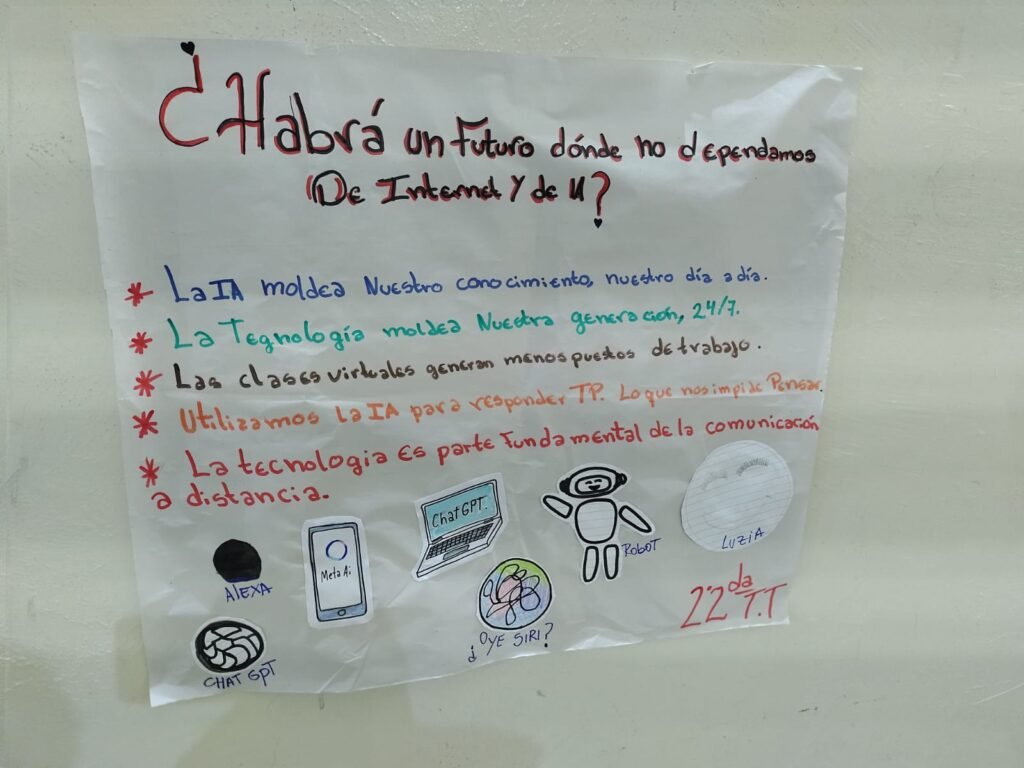 ¿Habrá un Futuro dónde no dependamos
De Internet y de U?
* La IA moldea Nuestro conocimiento, nuestro día a día.
* La Tegnología moldea Nuestra generación, 24/7.
* Las clases virtuales generan menos puestos de trabajo.
* Utilizamos la IA para responder TP. Lo que nos impide Pensar.
* La tecnologia Es parte Fundamental de la comunicación
a distancia.
ChatGPT.
Meta Ai
ROBOT
LUZIA
ALEXA
22da T.T
¿OYE SIRI?
CHAT GPT